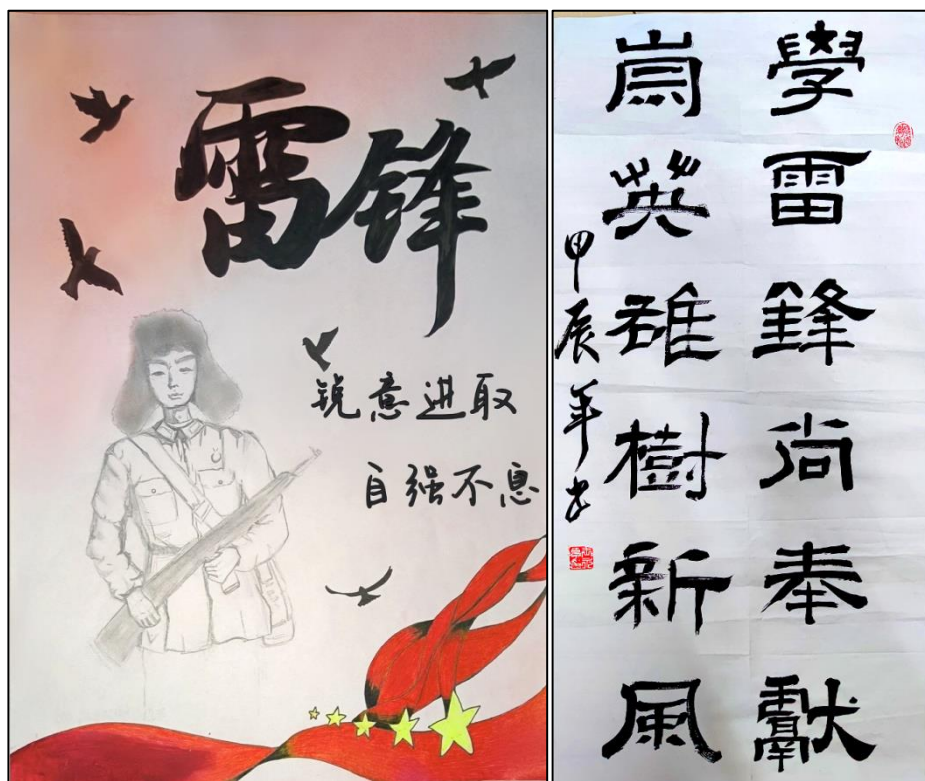 雷锋
锐意进取
自强不息
學雷鋒尚奉獻
崇英雄樹新風
甲辰年书